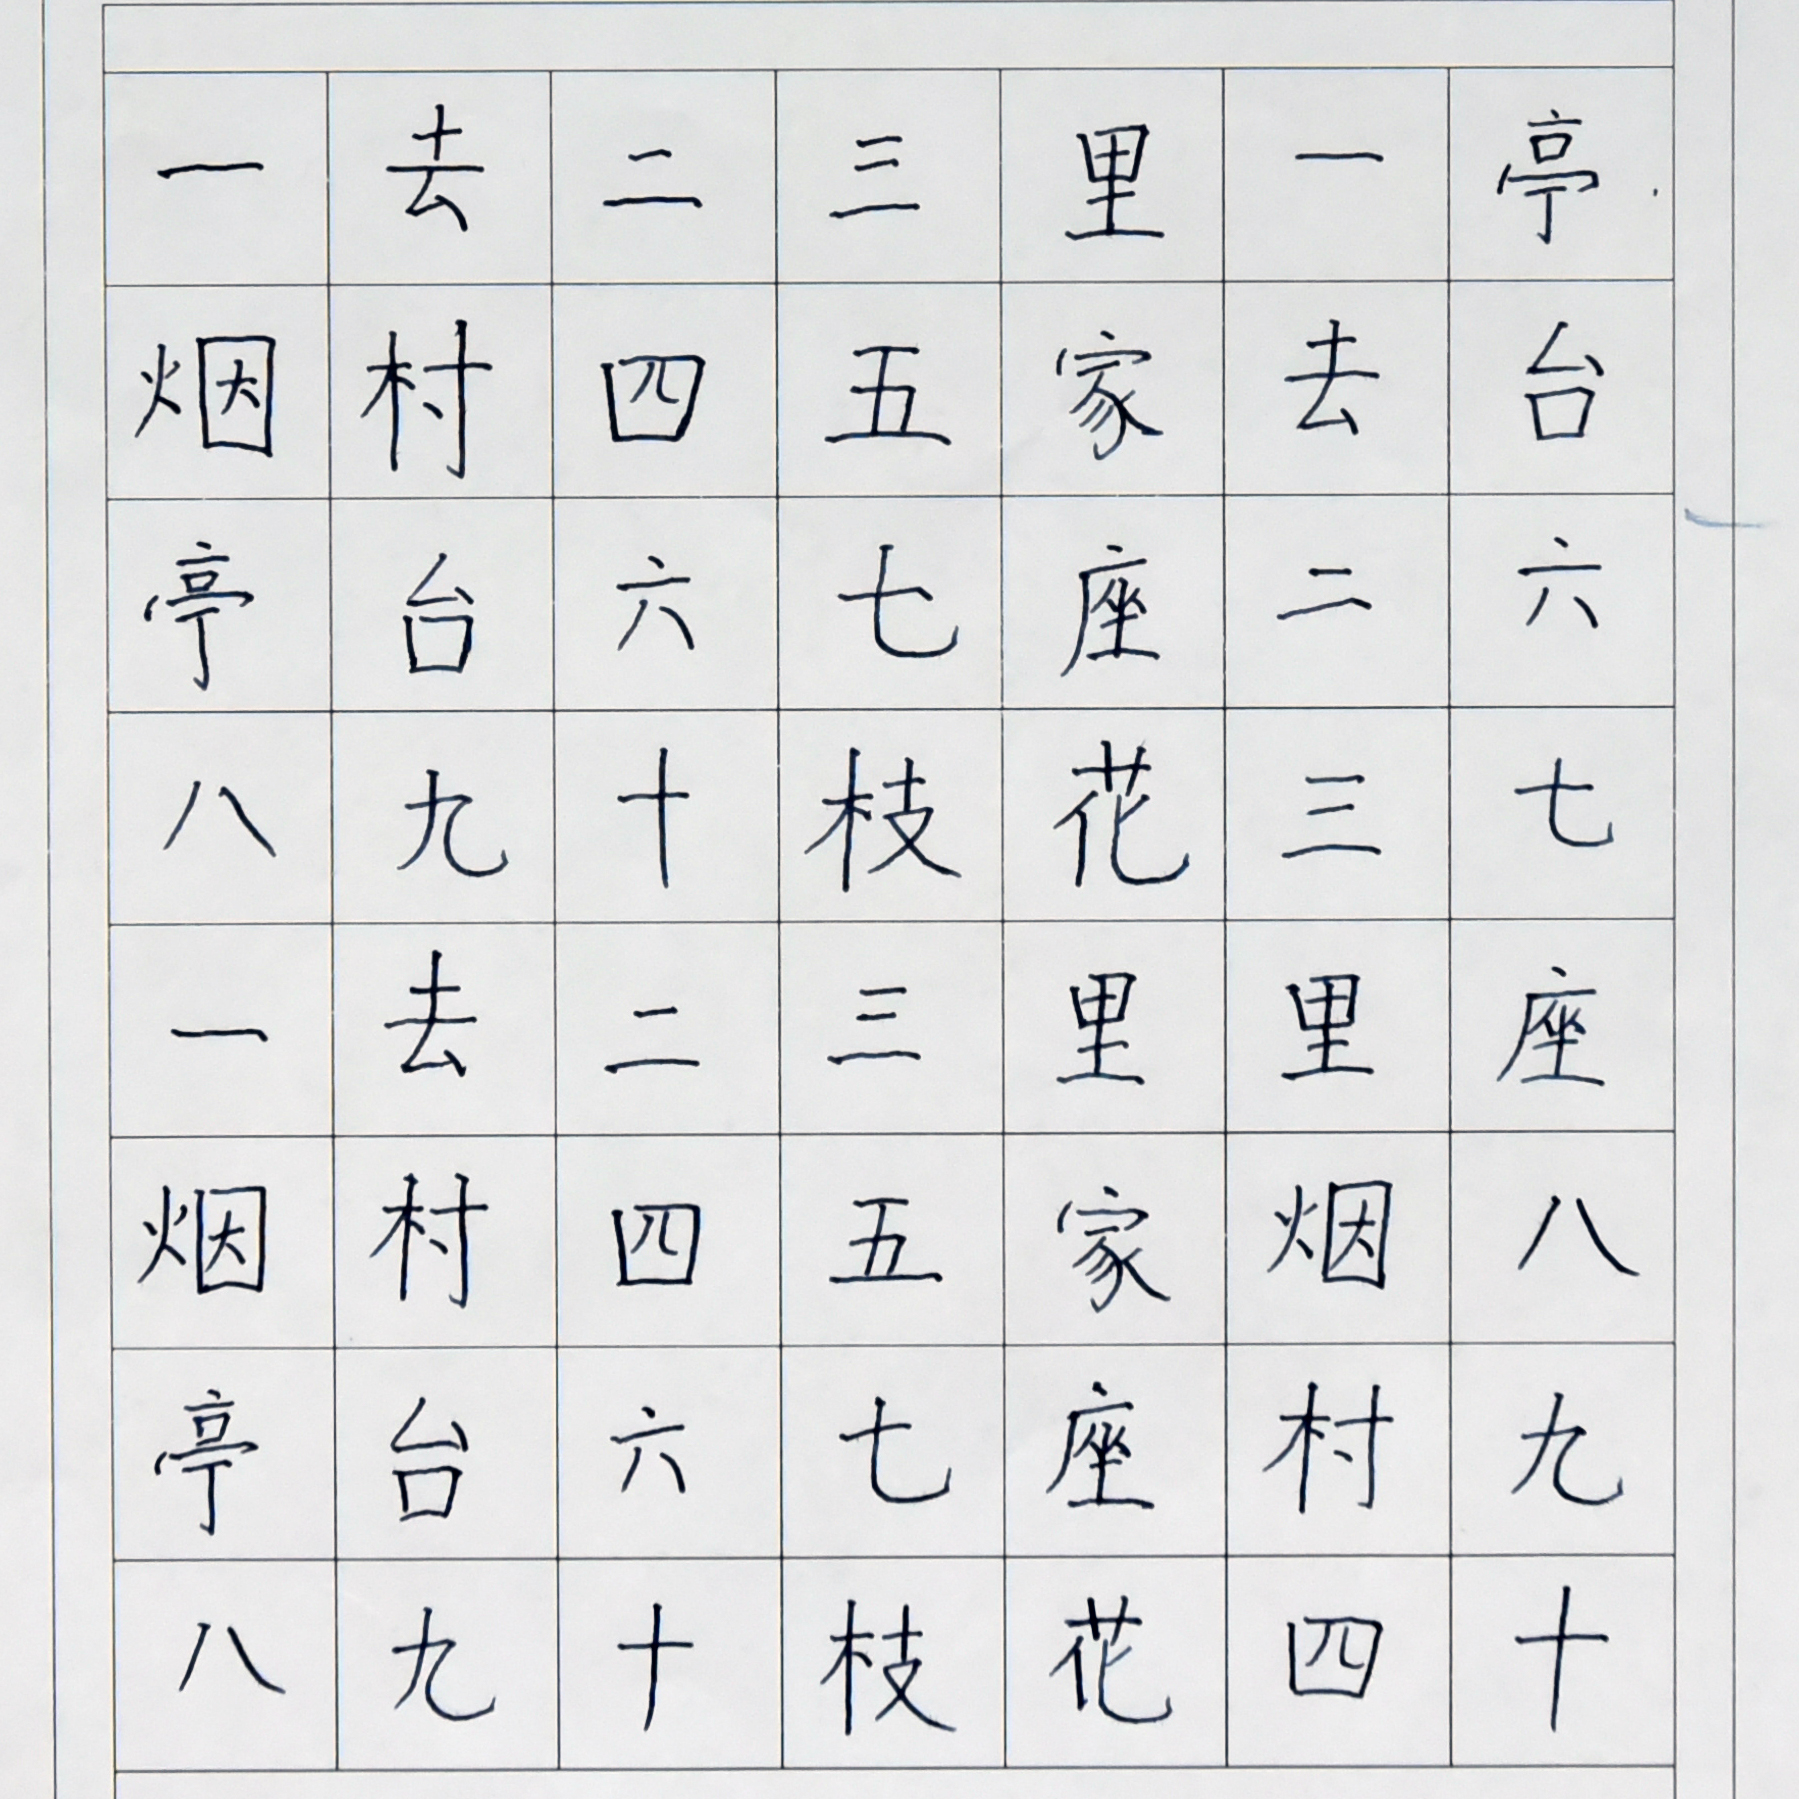 一去二三里一亭
烟村四五家去台
亭台六七座二六
八九十枝花三七
一去二三里里座
烟村四五家烟八
亭台六七座村九
八九十枝花四十